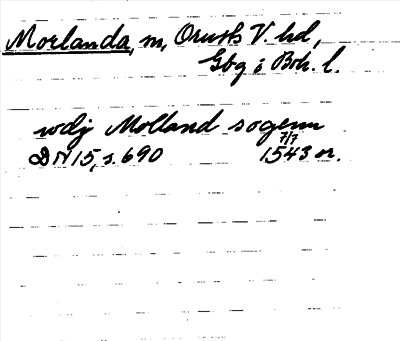 Morlanda, sn, Orusts V. hd,
Gbg o Boh. l.
wdj Molland sogenn
7/7
DN 15, s. 690 1543 or.